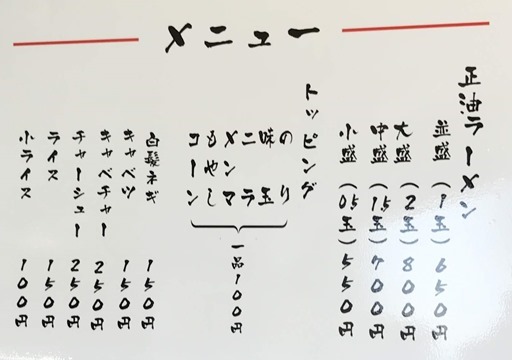 メニュー
正油ラーメン
並盛(1玉)650円
大盛(2玉)800円
中盛(1.5玉)700円
小盛(0.5玉)550円
トッピング
のり
味玉
ニラ
メンマ
もやし
コーン
一品100円
白髪ネギ 150円
キャベツ 150円
キャベチャー 250円
チャーシュー 250円
ライス 150円
小ライス 100円